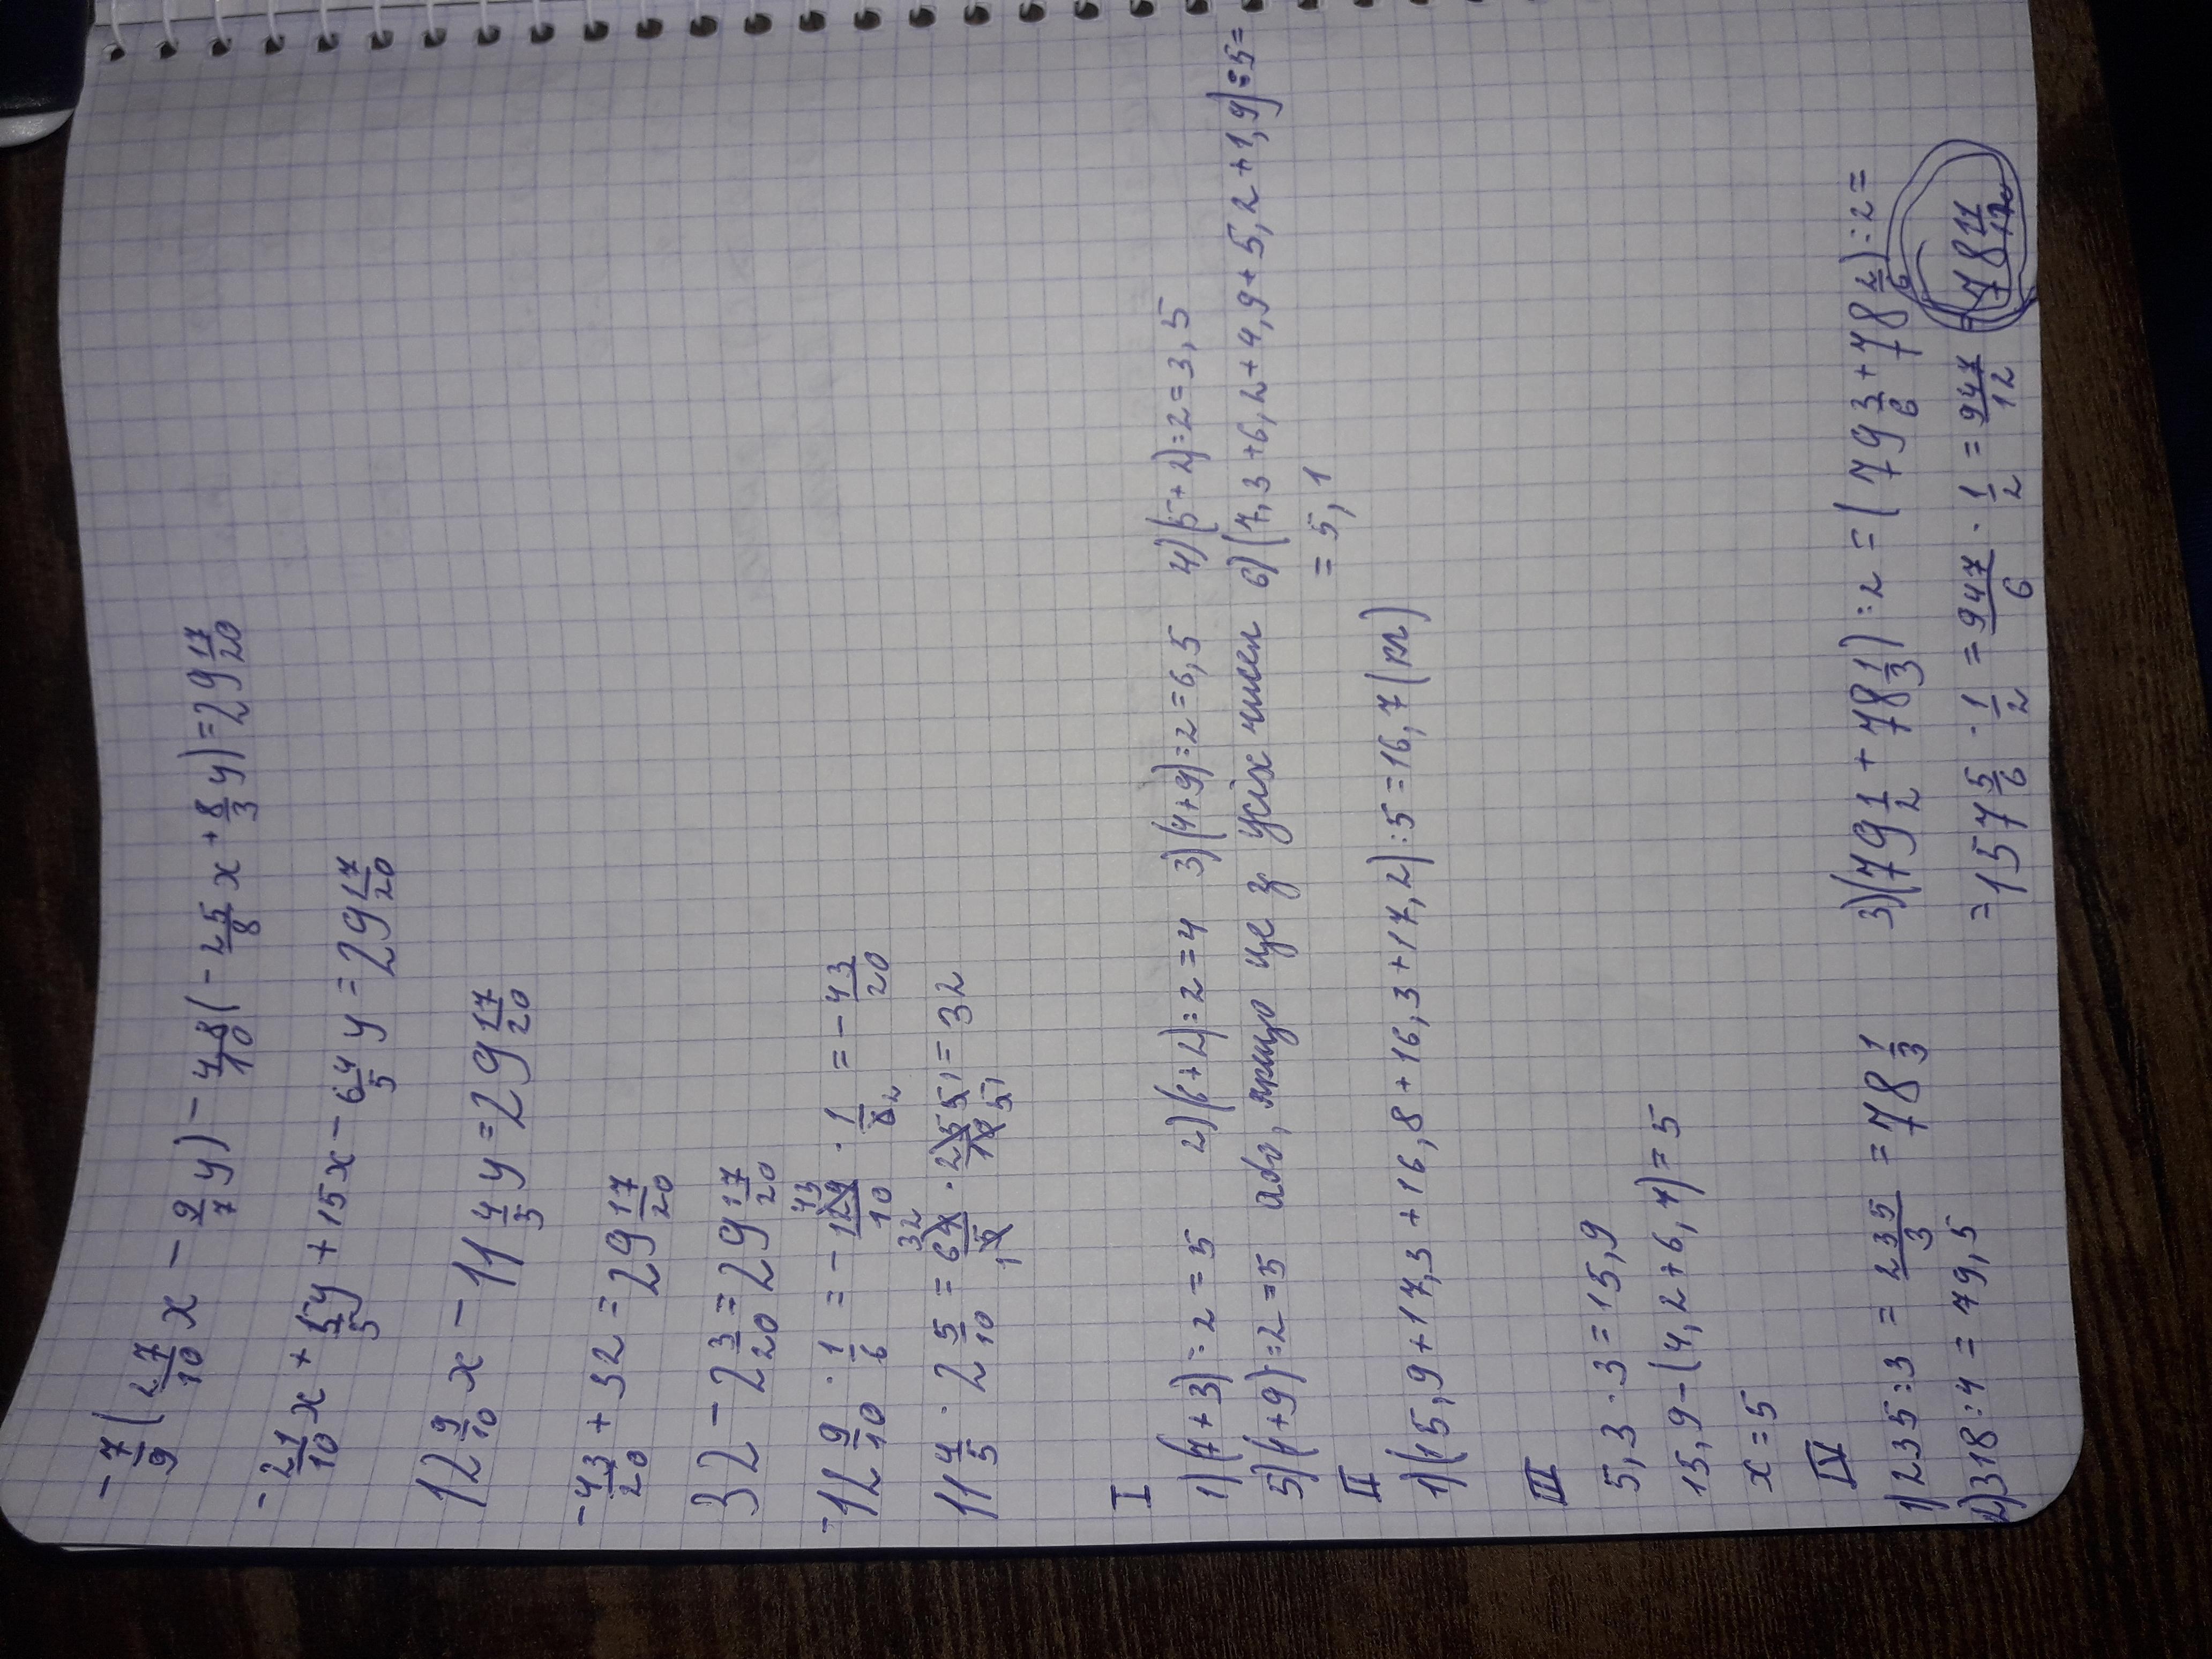 - 7/9 (2 7/10 x - 2/7 y) - 4 8/10 (- 2 5/8 x + 8/3 y) = 29 17/20
- 21/10 x + 15/5 y + 15x - 6 4/5 y = 29 17/20
12 9/10 x - 11 4/5 y = 29 17/20
- 43/20 + 32 = 29 17/20
32 - 2 3/20 = 29 17/20
-12 9/10 · 1/6 = - 129/10 · 1/6 = - 43/20
11 4/5 · 2 5/10 = 64/5 · 25/10 = 32
I
1) (7+3):2=5 2) (6+2):2=4 3) (4+9):2=6,5 4) (5+2):2=3,5
5) (1+9):2=5 або, якщо це з усіх чисел 6) (7,3+6,2+4,9+5,2+1,9):5=
= 5,1
II
1) (15,9+17,3+16,8+16,3+17,2):5=16,7 (кг)
III
5,3·3=15,9
15,9-(4,2+6,7)=5
x=5
IV
1) 235:3 = 235/3 = 78 1/3 3) (79 1/2 + 78 1/3):2 = (79 3/6 + 78 2/6):2=
2) 318:4=79,5 = 157 5/6 · 1/2 = 947/6 · 1/2 = 947/12 = 78 11/12